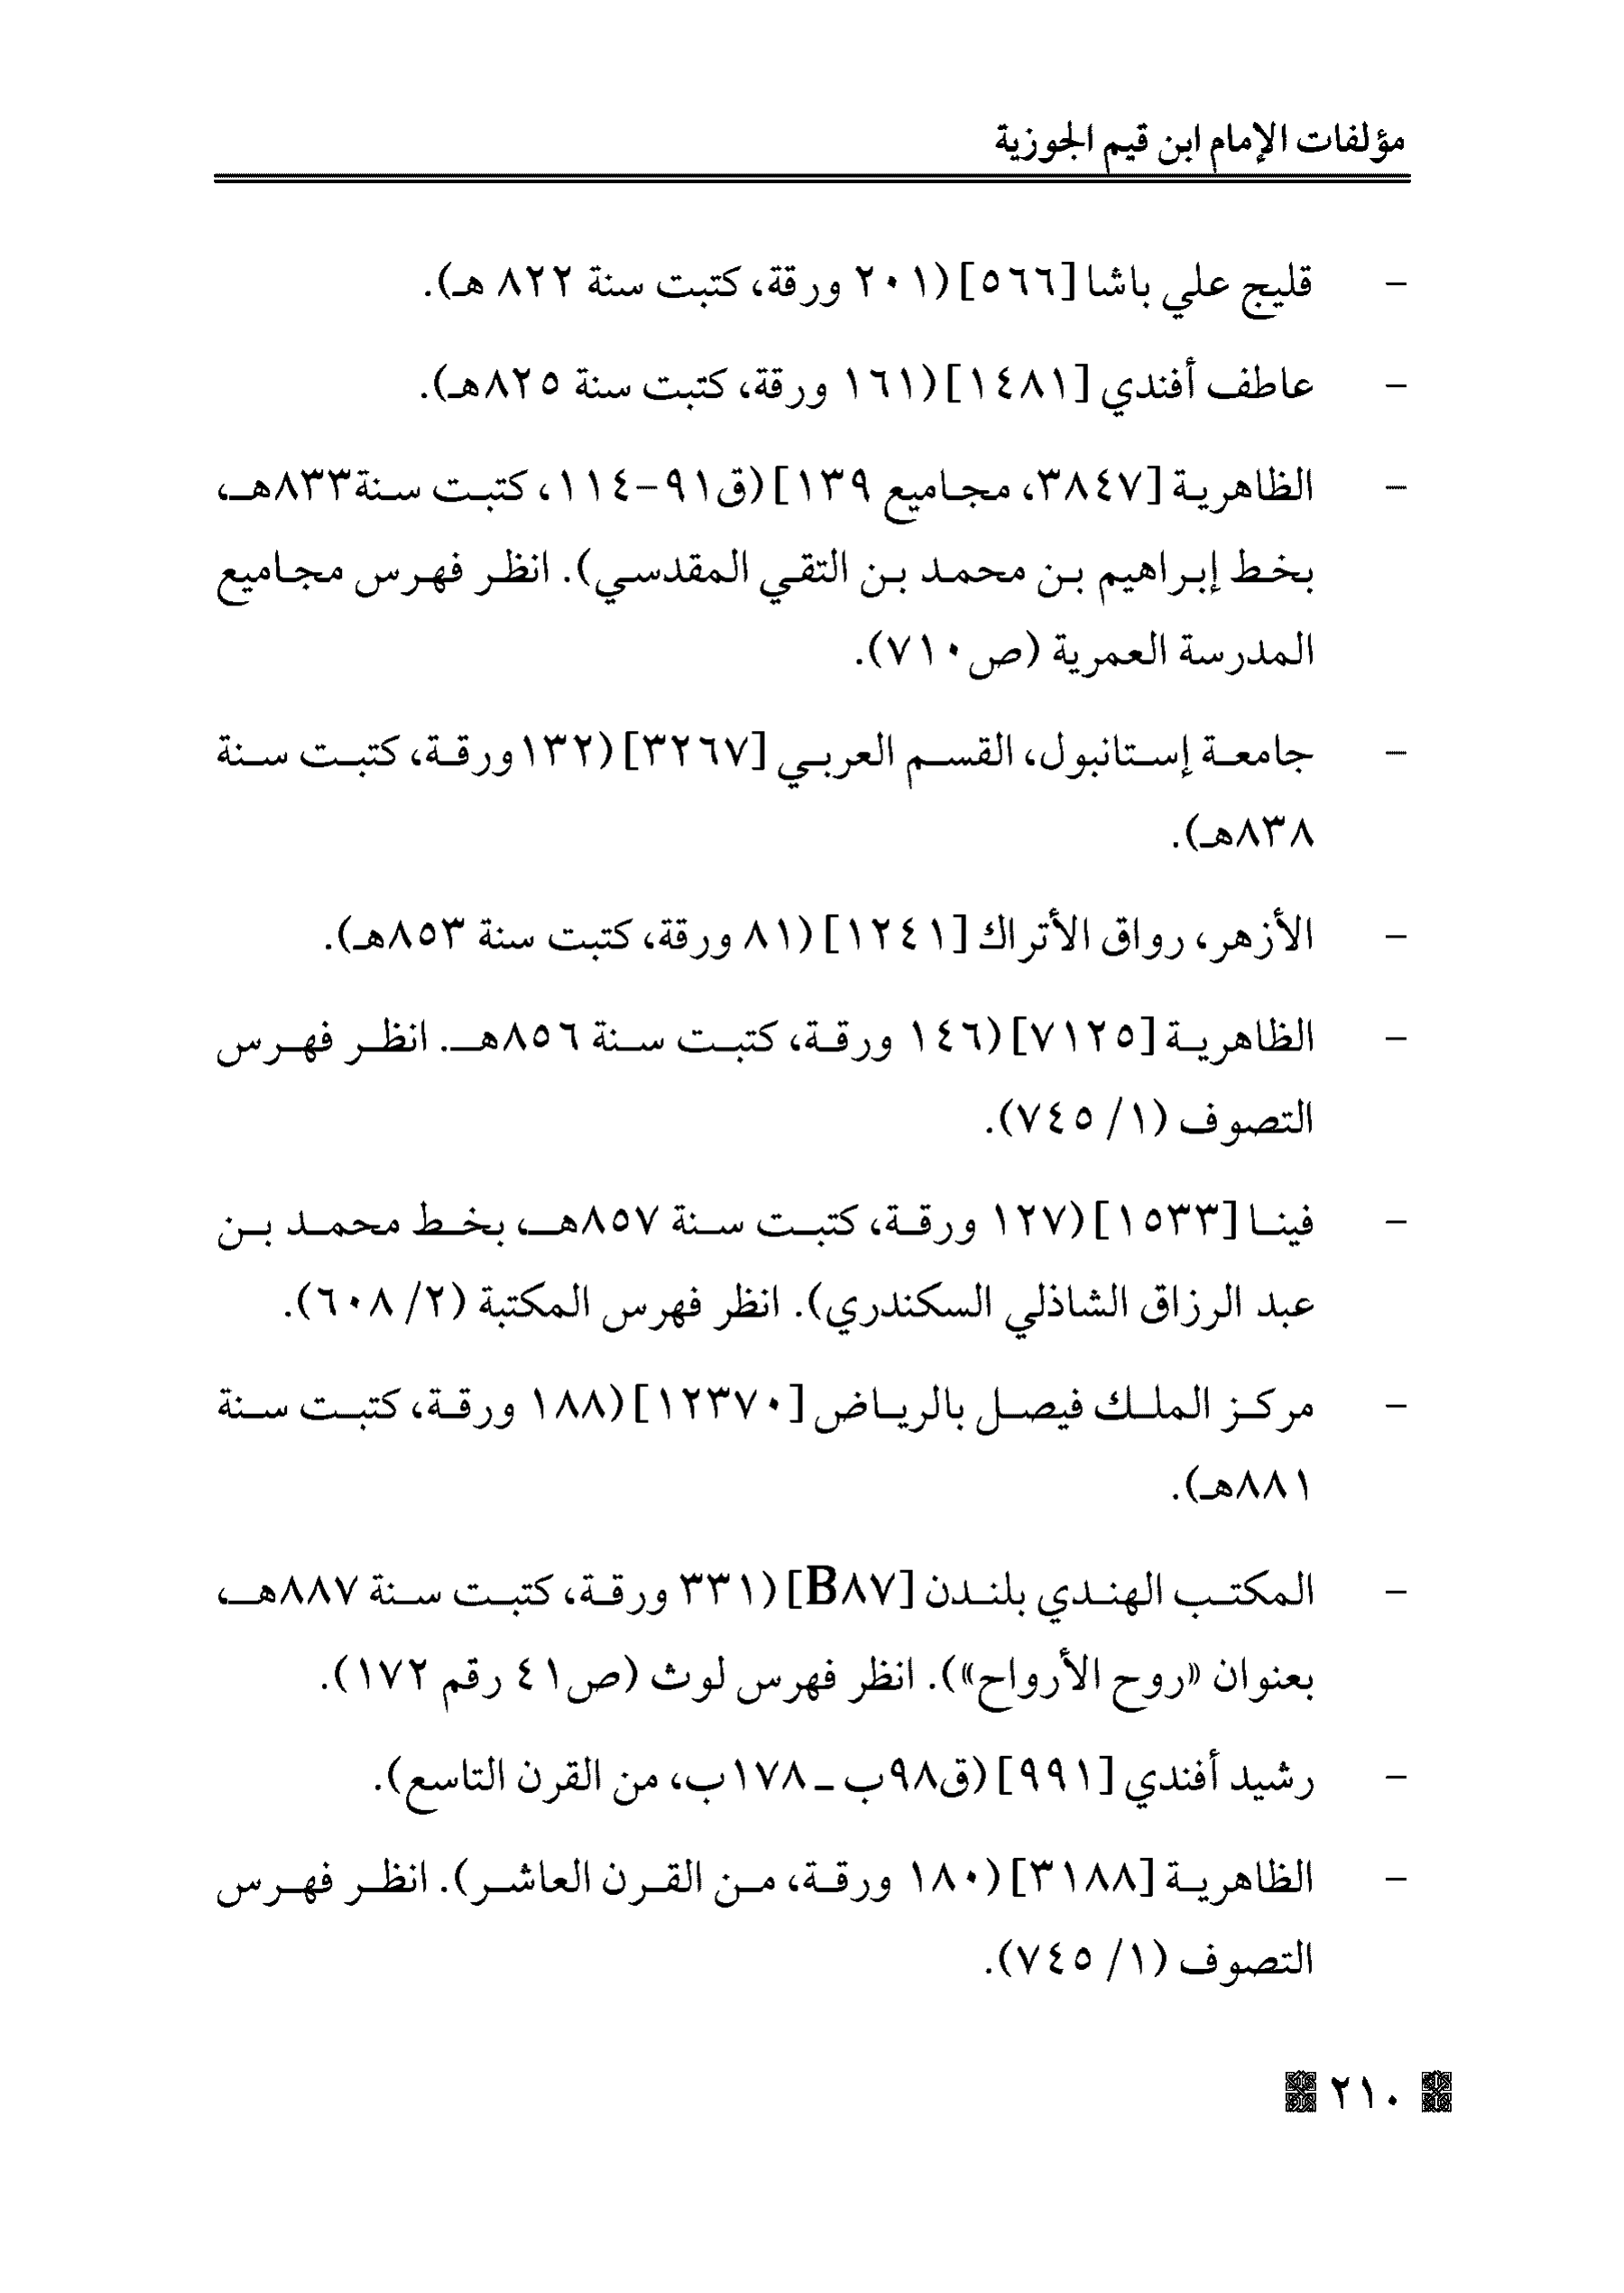 مؤلفات الإمام ابن قيم الجوزية
- قليج علي باشا [٥٦٦] (٢٠١ ورقة، كتبت سنة ٨٢٢ هـ).
- عاطف أفندي [١٤٨١] (١٦١ ورقة، كتبت سنة ٨٢٥هـ).
- الظاهرية [٣٨٤٧، مجاميع ١٣٩] (ق٩١-١١٤، كتبت سنة٨٣٣هـ،
بخط إبراهيم بن محمد بن التقي المقدسي). انظر فهرس مجاميع
المدرسة العمرية (ص٧١٠).
- جامعة إستانبول، القسم العربي [٣٢٦٧] (١٣٢ورقة، كتبت سنة
٨٣٨هـ).
- الأزهر، رواق الأتراك [١٢٤١] (٨١ ورقة، كتبت سنة ٨٥٣هـ).
- الظاهرية [٧١٢٥] (١٤٦ ورقة، كتبت سنة ٨٥٦هـ. انظر فهرس
التصوف (١/ ٧٤٥).
- فينا [١٥٣٣] (١٢٧ ورقة، كتبت سنة ٨٥٧هـ، بخط محمد بن
عبد الرزاق الشاذلي السكندري). انظر فهرس المكتبة (٢/ ٦٠٨).
- مركز الملك فيصل بالرياض [١٢٣٧٠] (١٨٨ ورقة، كتبت سنة
٨٨١هـ).
- المكتب الهندي بلندن [B٨٧] (٣٣١ ورقة، كتبت سنة ٨٨٧هـ،
بعنوان «روح الأرواح»). انظر فهرس لوث (ص٤١ رقم ١٧٢).
- رشيد أفندي [٩٩١] (ق٩٨ب ـ ١٧٨ب، من القرن التاسع).
- الظاهرية [٣١٨٨] (١٨٠ ورقة، من القرن العاشر). انظر فهرس
التصوف (١/ ٧٤٥).
٢١٠